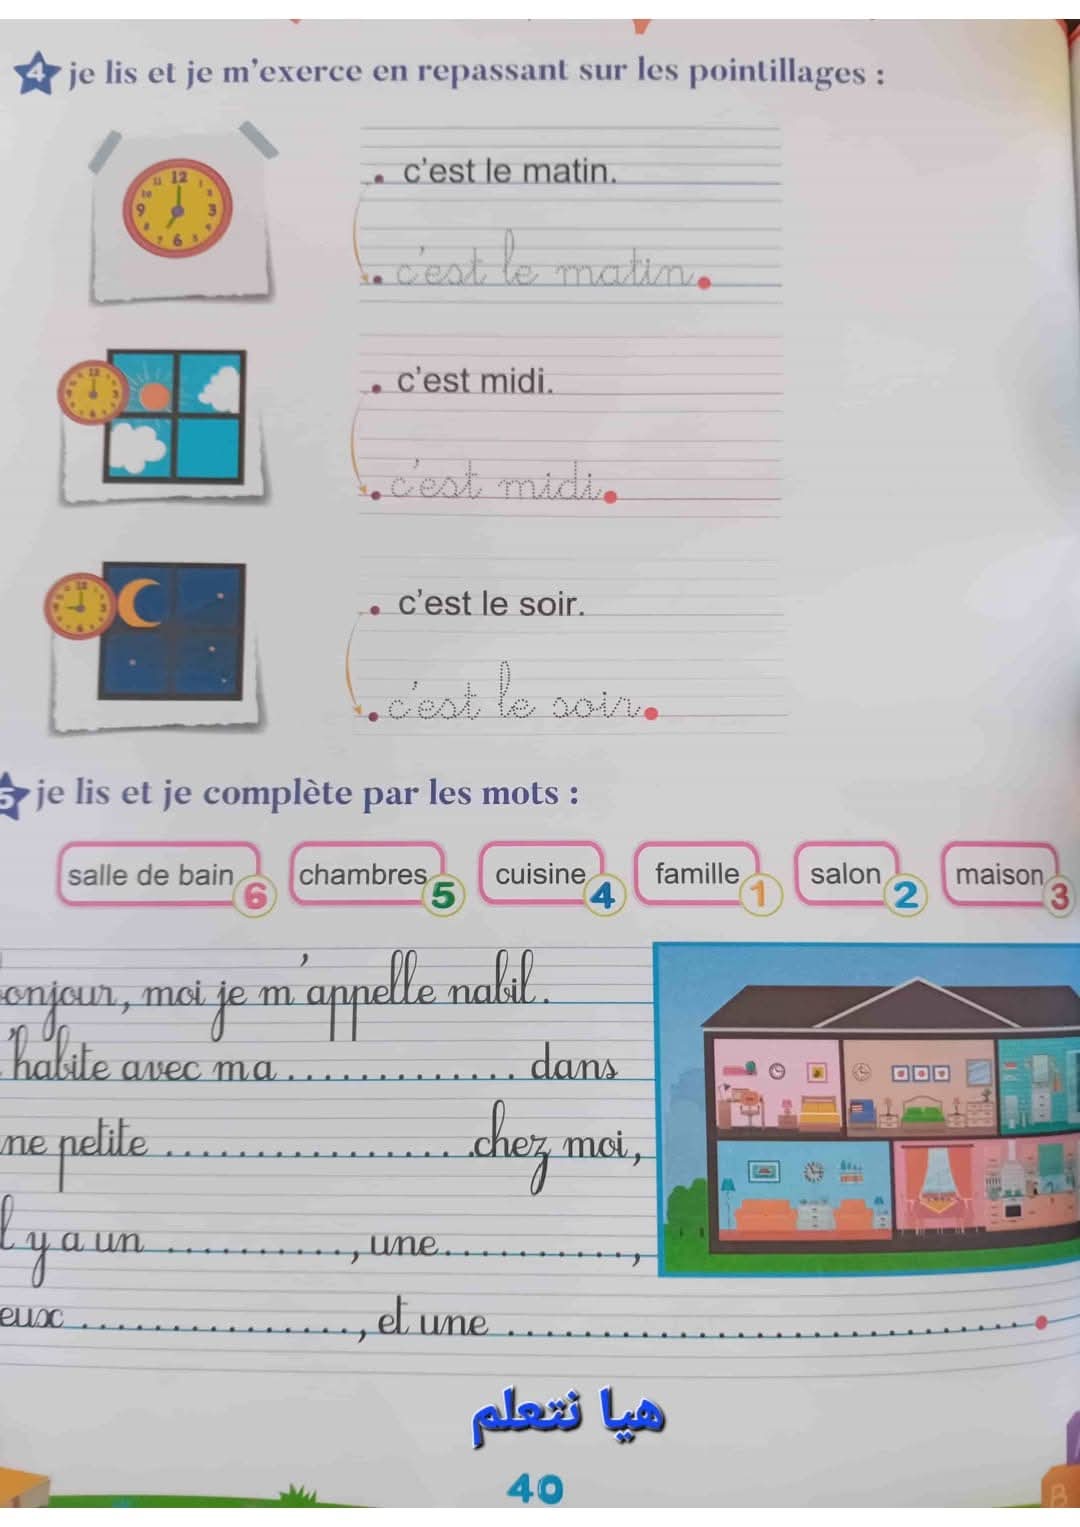 4 je lis et je m'exerce en repassant sur les pointillages :
12
11 1
10 2
9 3
8 4
7 6 5
c'est le matin.
c'est le matin.
c'est midi.
c'est midi.
c'est le soir.
c'est le soir.
5 je lis et je complète par les mots :
salle de bain 6 chambres 5 cuisine 4 famille 1 salon 2 maison 3
onjour, moi je m'appelle nabil.
'habite avec ma ............. dans
ne petite ................ chez moi,
l y a un ..........., une............,
eux ................, et une ..............................
هيا نتعلم
40
B